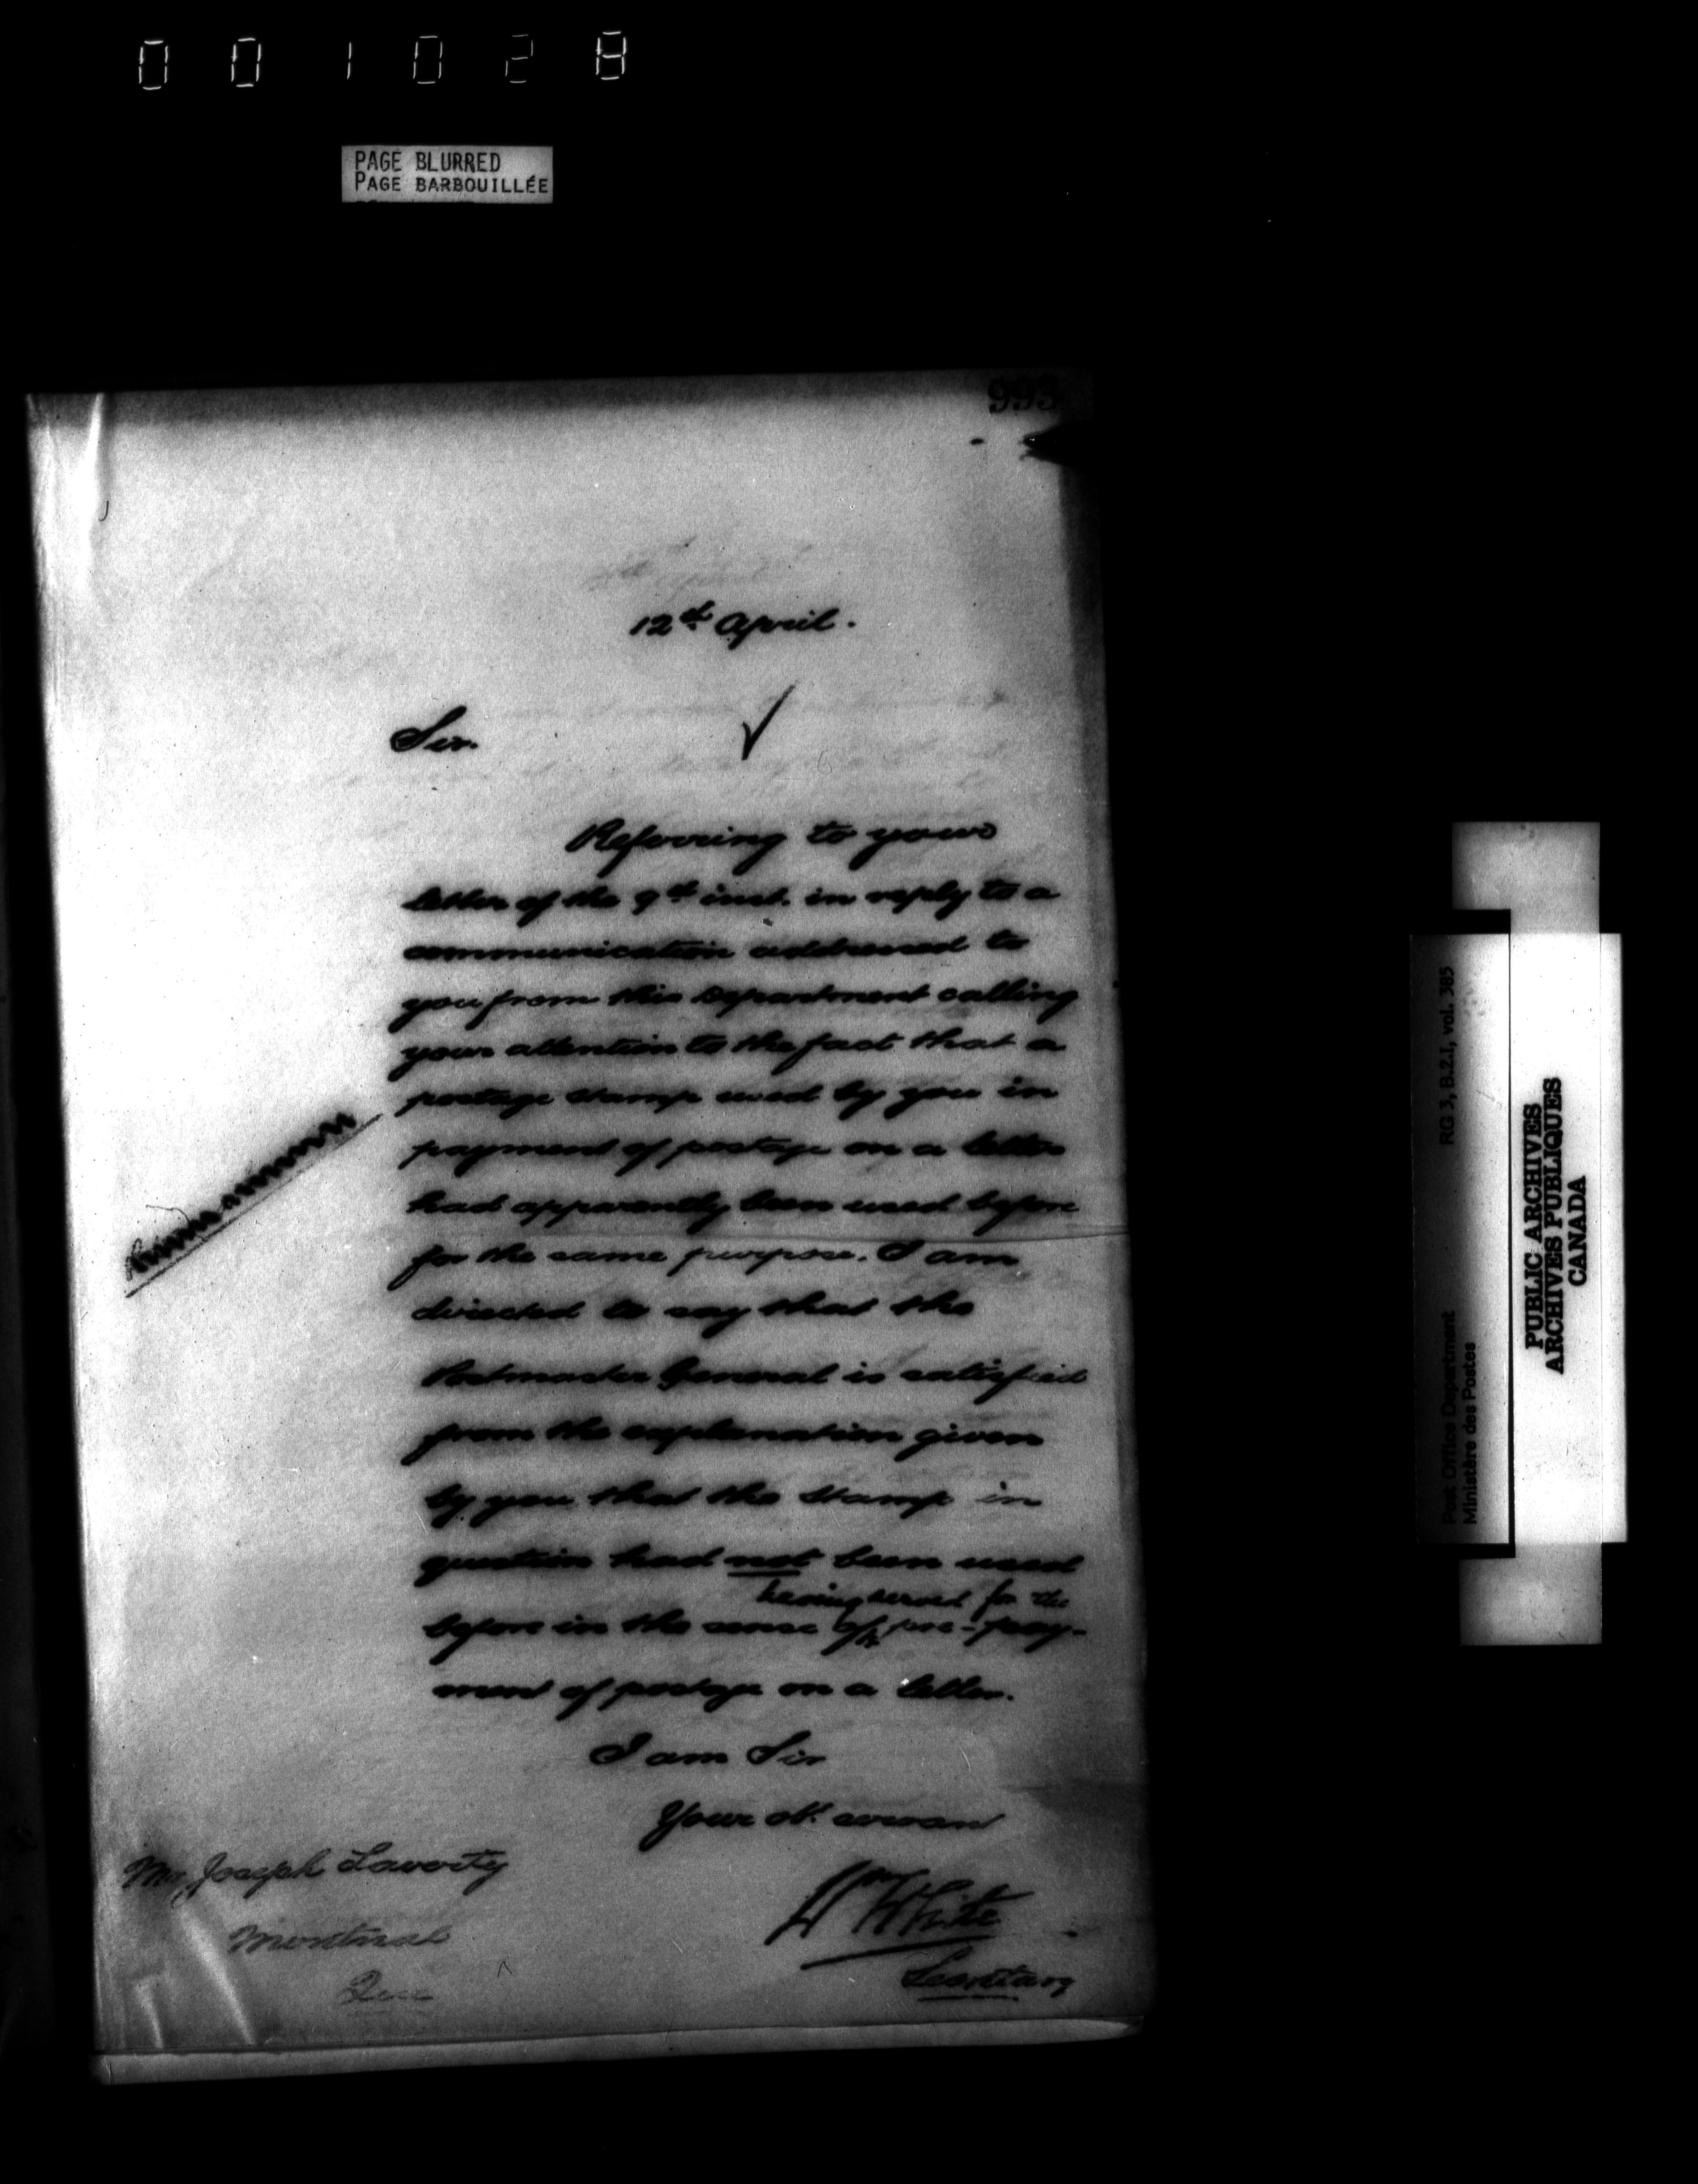 001028
PAGE BLURRED
PAGE BARBOUILLÉE
993
12th April.
Sir.
Referring to your
letter of the 9th inst. in reply to a
communication addressed to
you from this Department calling
your attention to the fact that a
postage stamp used by you in
payment of postage on a letter
had apparently been used before
for the same purpose. I am
directed to say that the
Postmaster General is satisfied
from the explanation given
by you that the stamp in
question had not been used
having served for the
before in the sense of pre-pay-
ment of postage on a letter.
I am Sir
Your obt. servant
Mr. Joseph Laverty
Montreal
Que
Wm White
Secretary
RG 3, B.2.1, vol. 385
Post Office Department
Ministère des Postes
PUBLIC ARCHIVES
ARCHIVES PUBLIQUES
CANADA